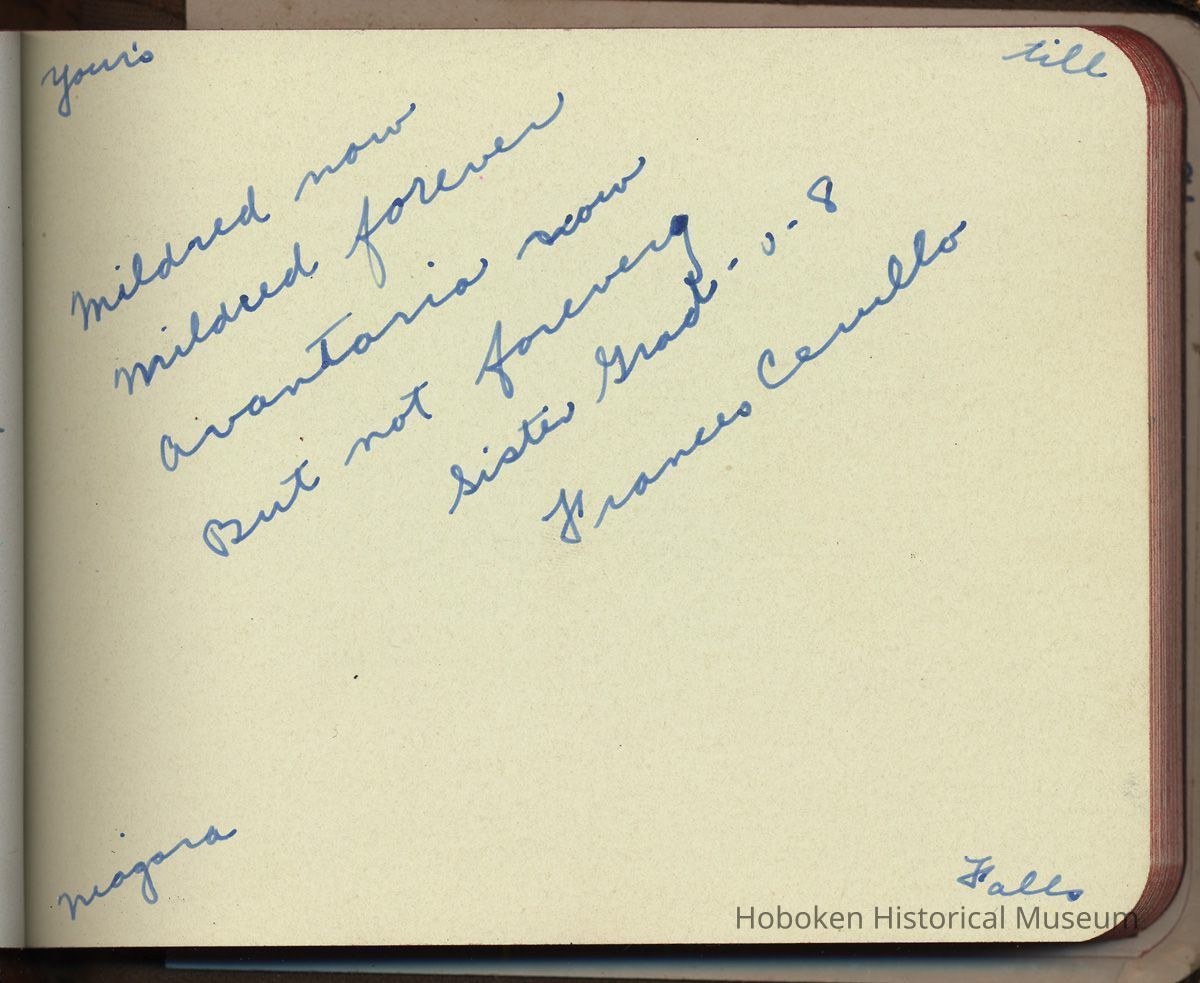 Your's
till
Mildred now
Mildred forever
Avantaria now
But not forever
Sister Grad. - U- 8
Frances Cerullo
Niagara
Falls
Hoboken Historical Museum